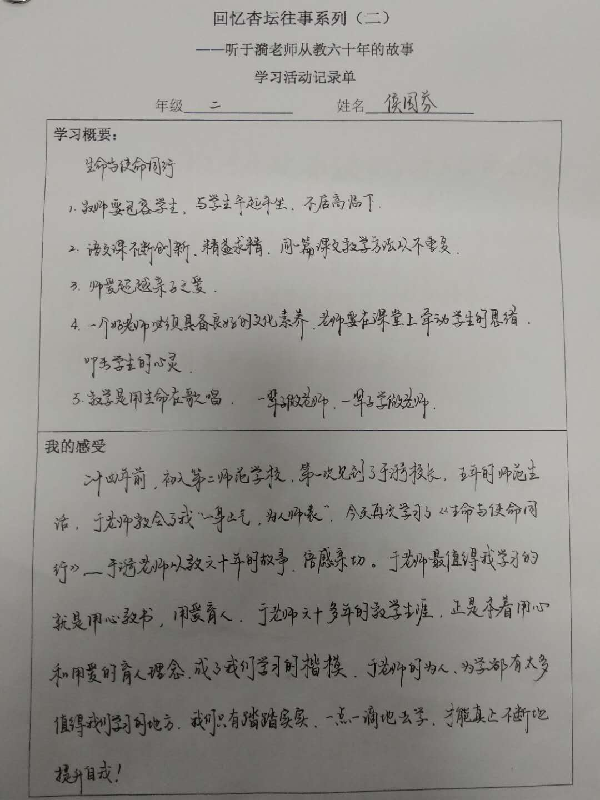 回忆杏坛往事系列（二）
——听于漪老师从教六十年的故事
学习活动记录单
年级 二 姓名 侯国芬
学习概要：
生命与使命同行
1. 教师要包容学生，与学生平起平坐，不居高临下.
2. 语文课不断创新、精益求精，同一篇课文教学方法从不重复.
3. 师爱超越亲子之爱.
4. 一个好老师必须具备良好的文化素养，老师要在课堂上牵动学生的思绪，
叩击学生的心灵.
5. 教学是用生命在歌唱. 一辈子做老师，一辈子学做老师.
我的感受
二十四年前，初入第二师范学校，第一次见到了于漪校长，五年的师范生
活，于老师教会了我“一身正气，为人师表”，今天再次学习与《生命与使命同
行》——于漪老师从教六十年的故事，倍感亲切。于老师最值得我学习的
就是用心教书，用爱育人，于老师六十多年的教学生涯，正是本着用心
和用爱的育人理念，成了我们学习的楷模，于老师的为人、为学都有太多
值得我们学习的地方，我们只有踏踏实实，一点一滴地去学，才能真正不断地
提升自我！